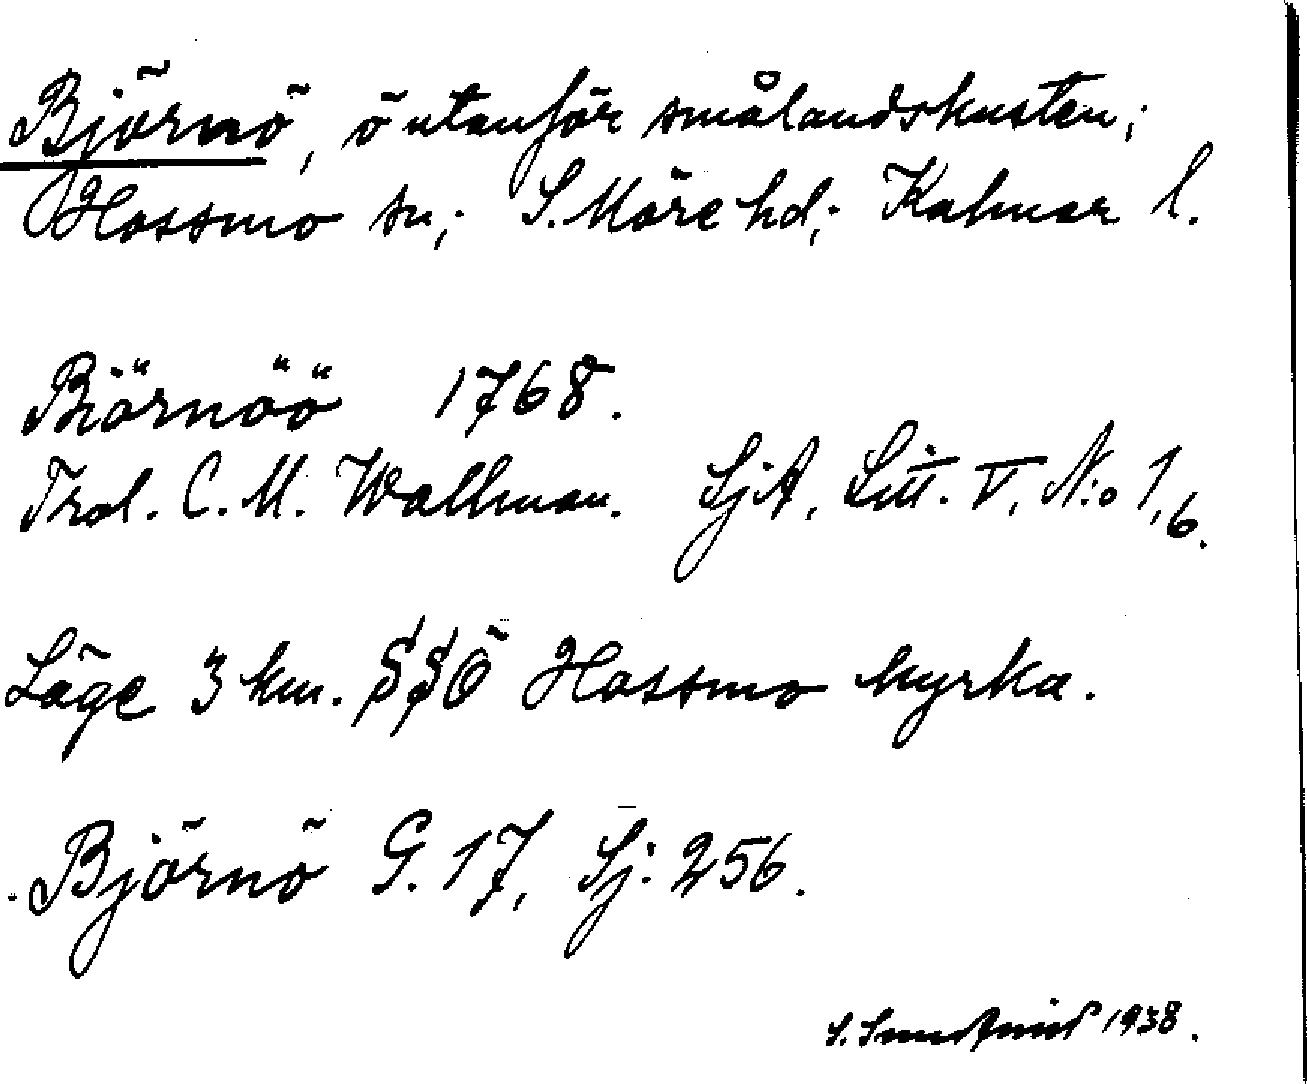 Björnö, ö utanför smålandskusten;
Hossmo sn; S. Möre hd; Kalmar l.
Biörnöö 1768.
Trol. C. M. Wallman. SjA, Litt. V, N:o 1,6.
Läge 3 km. SSÖ Hossmo kyrka.
Björnö G. 17, Sj: 256.
S. 1938.